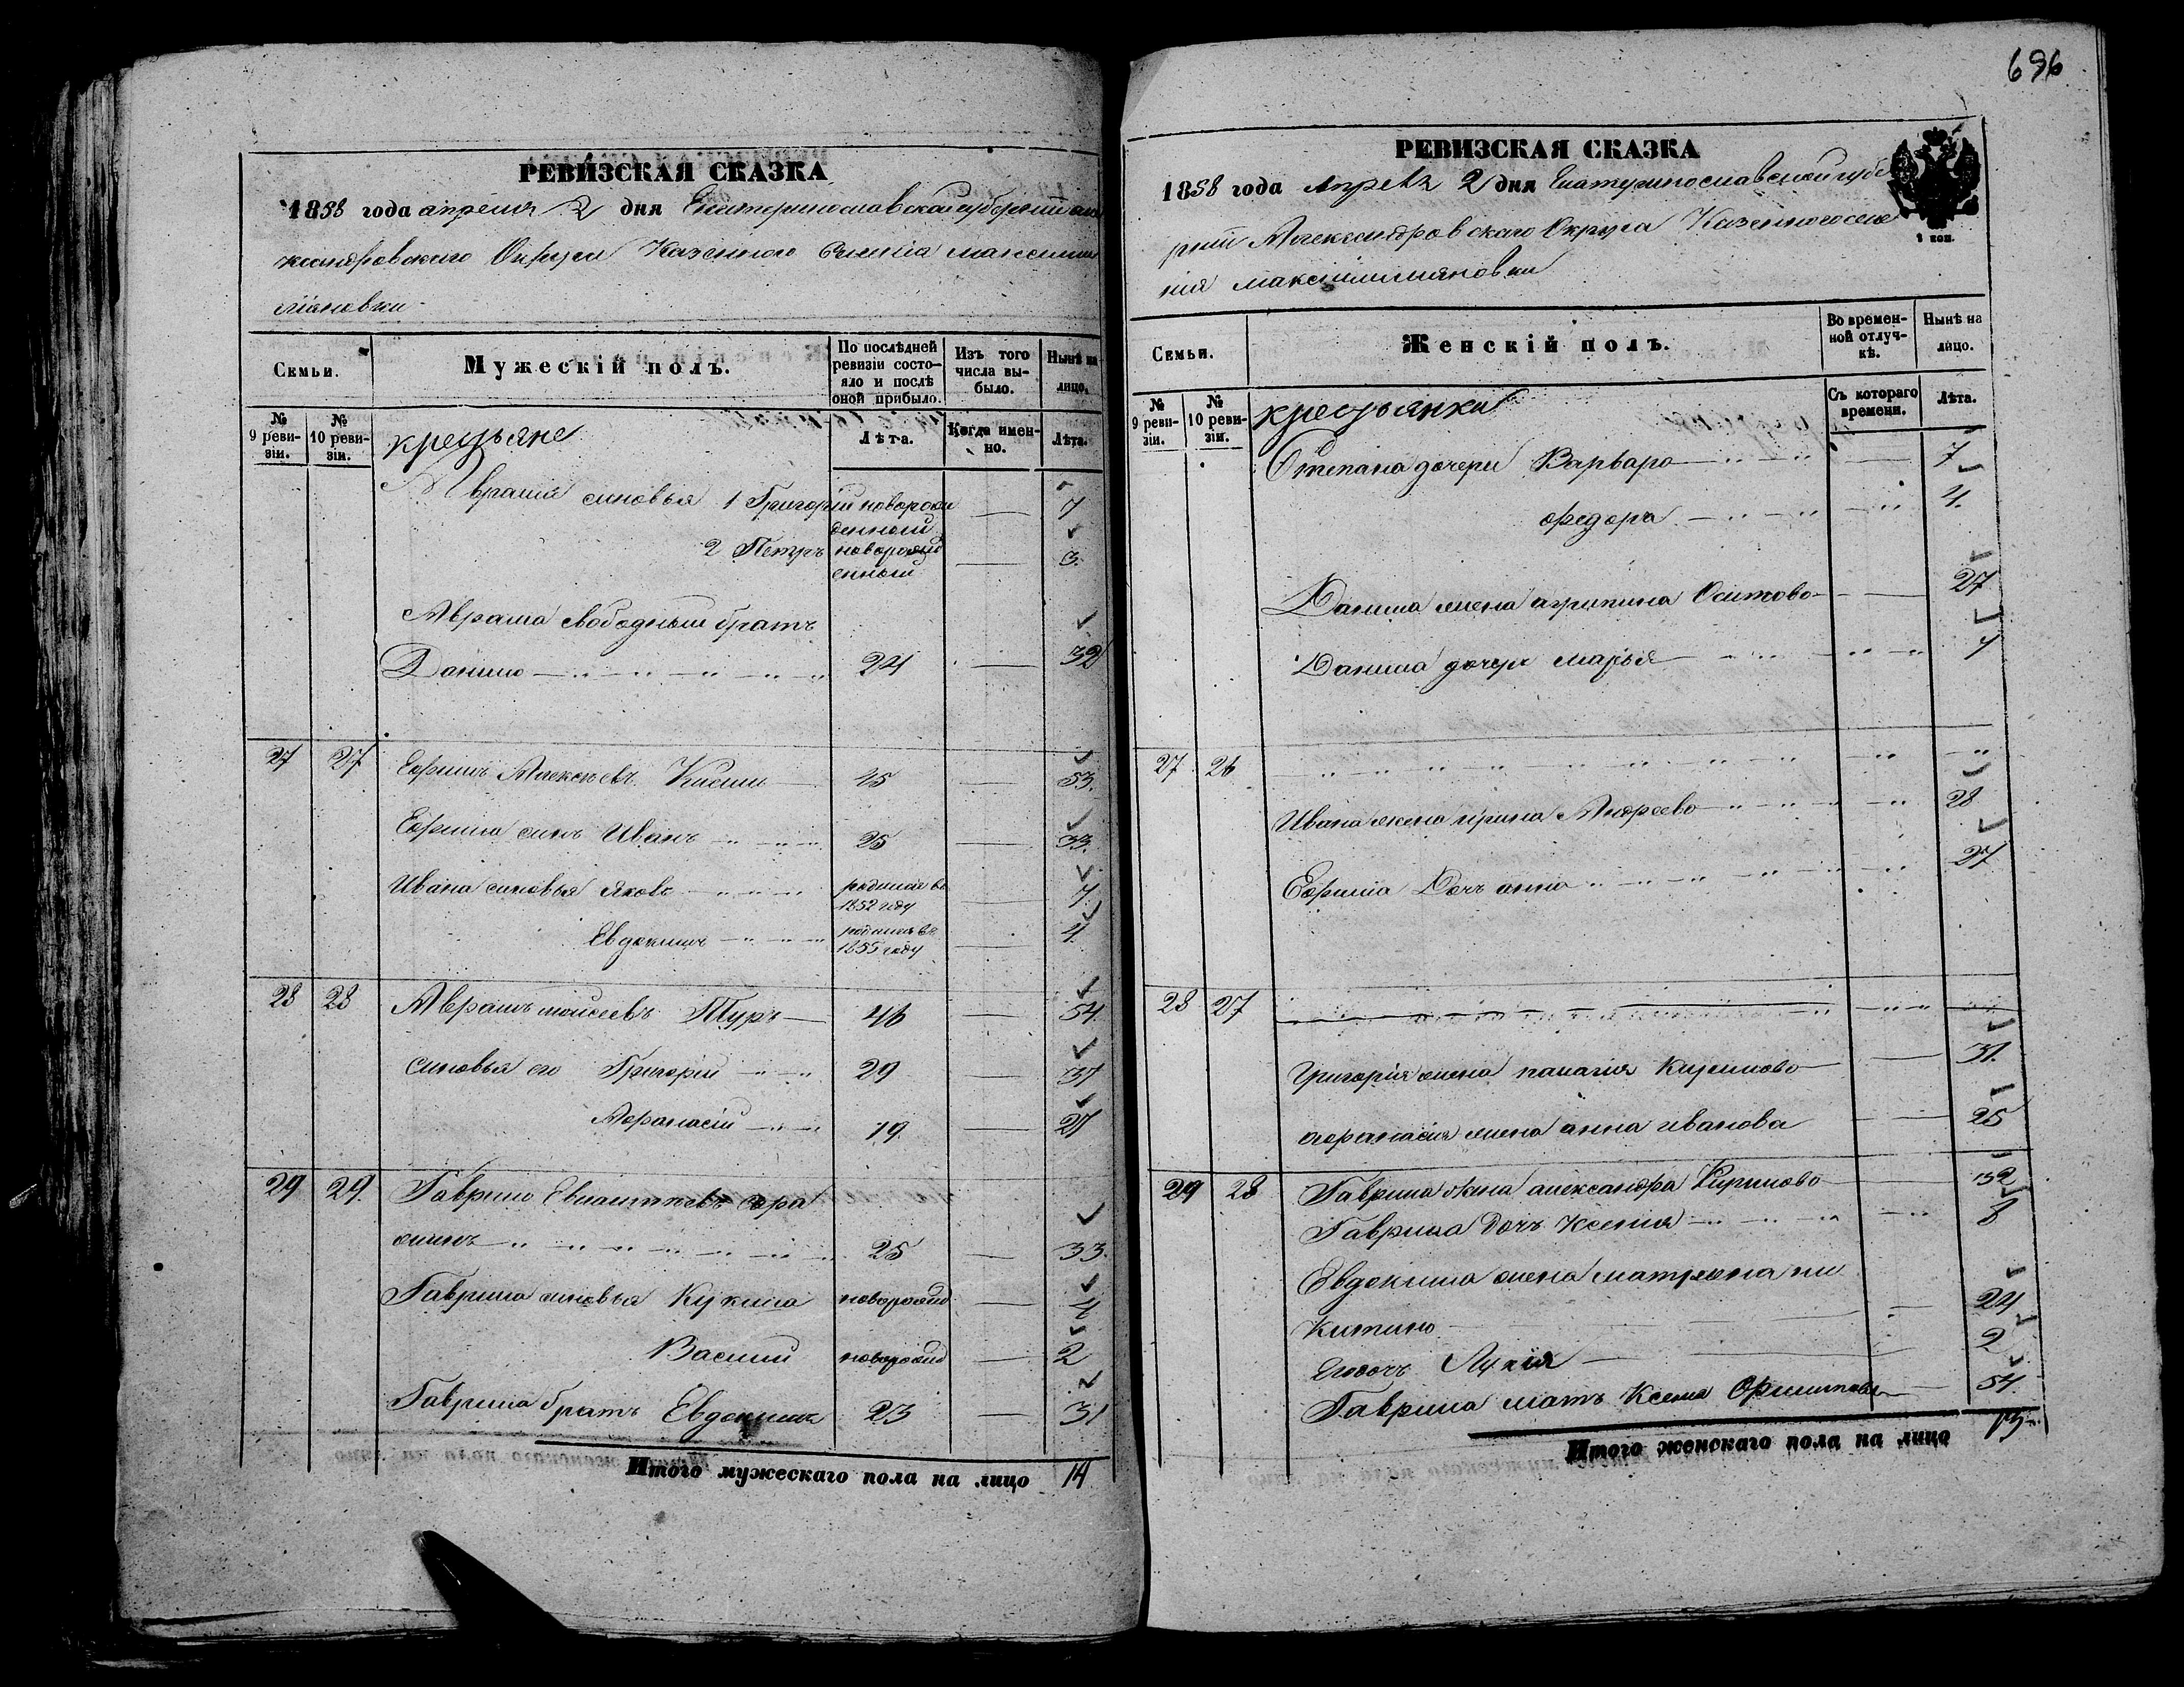 696
РЕВИЗСКАЯ СКАЗКА
1858 года апреля 2 дня Екатеринославской губернии але
ксандровского Округа Казенного Селения максими
лiановки
Семьи.
Мужескій полъ.
По послѣдней ревизіи состояло и послѣ оной прибыло.
Изъ того числа выбыло.
Нынѣ на лицо.
№ 9 ревизіи.
№ 10 ревизіи.
крестьяне
Лѣта.
Когда именно.
Лѣта.
Аврама сыновья 1 Григорій новорожденный — 7
2 Петръ новорожденный — 3.
Аврама свободный братъ
Данило 24 — 32
27 27 Ефимъ Алексѣевъ 45 — 53.
Ефима сынъ Иванъ 25 — 33.
Ивана сыновья Яковъ родился въ 1852 году — 7
Евдокимъ родился въ 1855 году — 4.
28 28 Аврамъ моисеевъ Туръ 46 — 54.
сыновья его Григорій 29 — 37
Афанасій 19 — 27
29 29. Гаврило
25 — 33.
Гаврила сыновья новорожд — 4
Василий новорожд — 2
Гаврила братъ Евдокимъ 23 — 31
Итого мужескаго пола на лицо 14
РЕВИЗСКАЯ СКАЗКА
1858 года Апреля 2 дня Екатеринославской губе
рніи Александровскаго Округа Казенного селе
ния максимилиановки
1 коп.
Семьи.
Женскій полъ.
Во временной отлучкѣ.
Нынѣ на лицо.
№ 9 ревизіи.
№ 10 ревизіи.
крестьянки
Съ котораго времени.
Лѣта.
Степана дочери Варвара 7
федора 4.
Данила жена агрипина Осипова 27
Данила дочери марья 7
27 26
Ивана жена ирина Андреева 28
Ефима Дочь анна 27
28 27
григорія жена палагия 31.
афанасия жена анна иванова 25
29 28 Гаврила жена александра Кирилова 32
Гаврила Дочь Ксения 8
Евдокима жена матрена ни
китина 24
Егодочь Лукія 2
Гаврила мать 54.
Итого женскаго пола на лицо 13